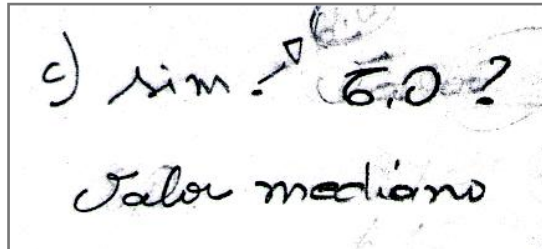 c) sim. 6,0?
Valor mediano